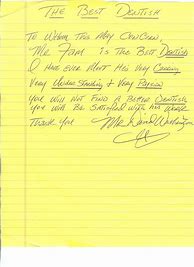 The Best Dentish
To Whom This May Concern,
Mr. Fam is the Best Dentish
I have ever Met His Very Caring
Very Understanding & Very
You will Not Find A Better Dentish
You will Be Satisfied with his Work
Thank you Mr. David Washington